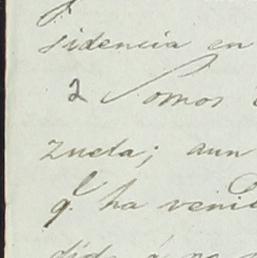 sidencia en
2 Somos
zuela; aun
q. ha veni